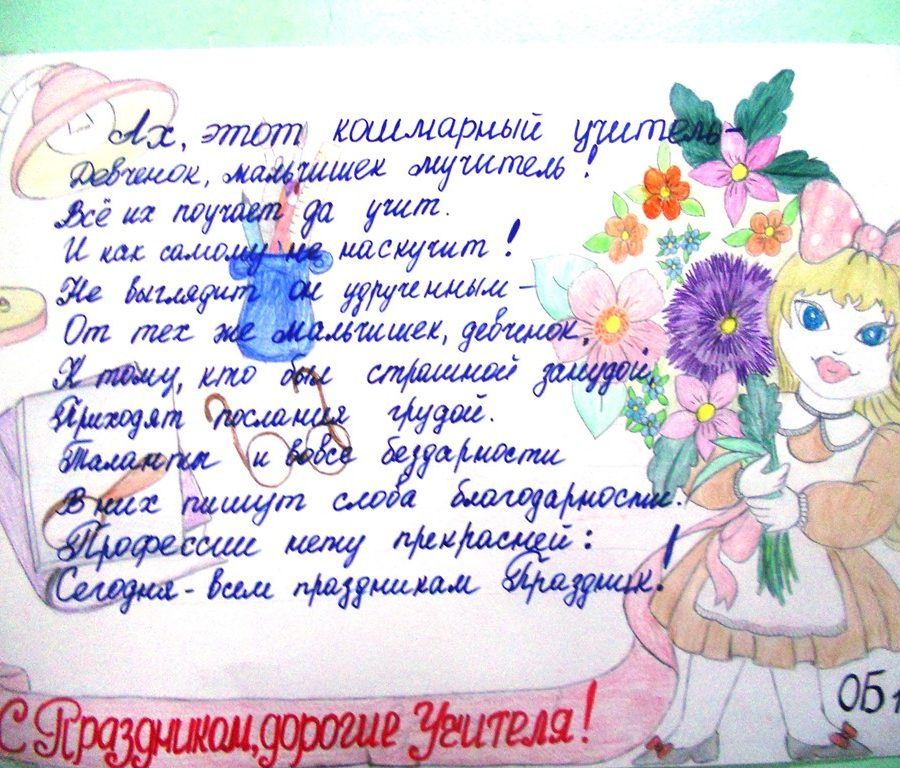 Ах, этот кошмарный учитель-
Девченок, мальчишек мучитель!
Всё их поучает да учит.
И как самому не наскучит!
Не выглядит он удрученным -
От тех же мальчишек, девченок,
К тому, кто был страшной занудой,
Приходят послания грудой.
Таланты и вовсе бездарности
В них пишут слова благодарности.
Профессии нету прекрасней:
Сегодня - всем праздникам Праздник!
С Праздником, дорогие Учителя!
ОБ